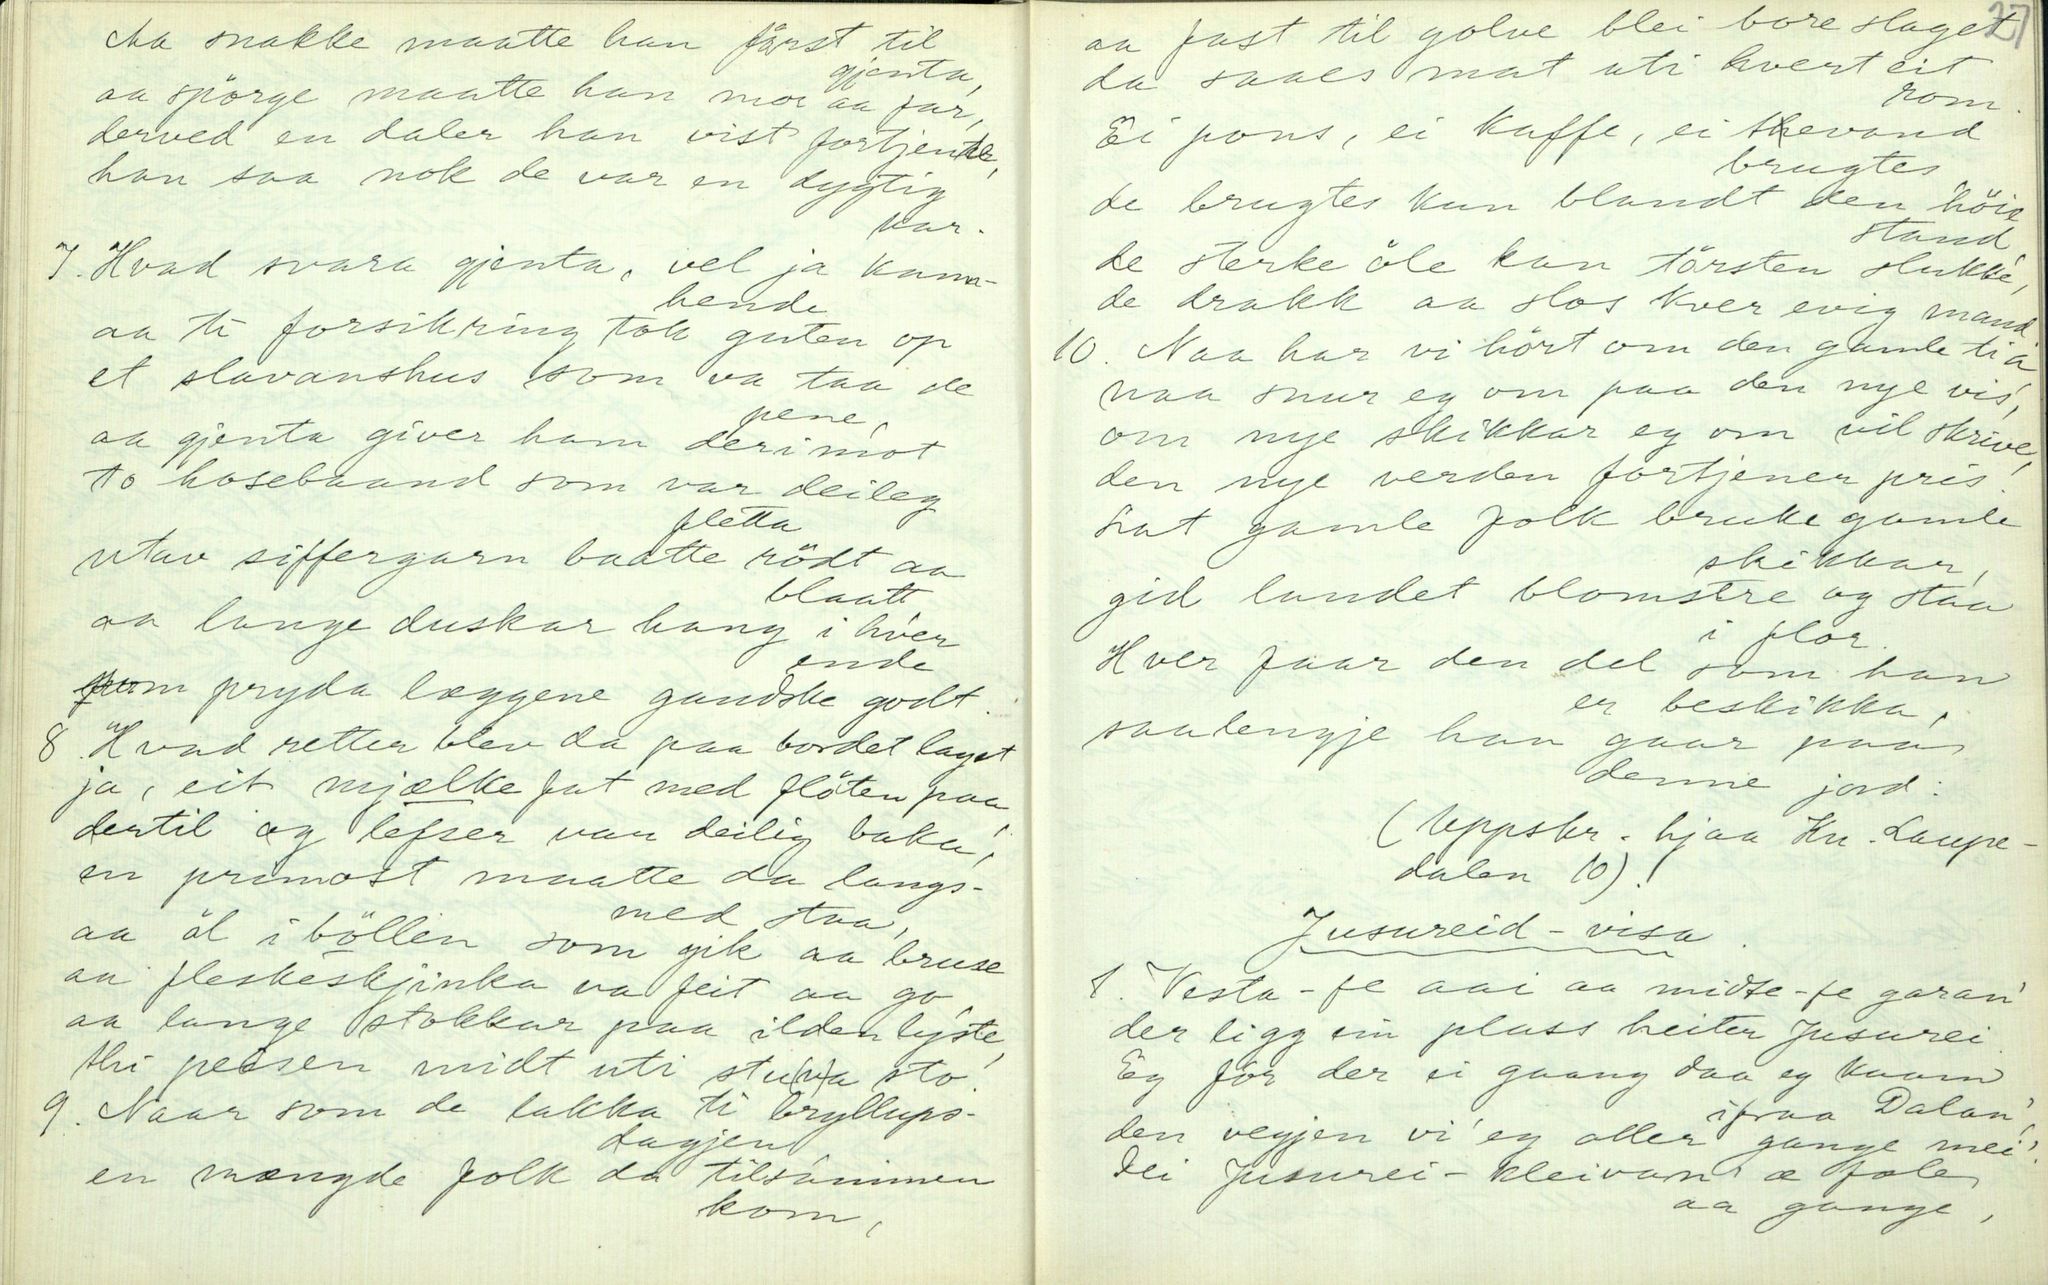 Aa snakke maatte han först til
gjenta,
aa spörge maatte han mor aa far,
derved en daler han vist fortjente,
han saa nok de var en dygtig
kar.
7. Hvad svara gjenta, vel ja kann-
hende
aa ti forsikring tok guten op
et slavanshus som va taa de
pene,
aa gjenta giver ham derimot
to hosebaand som var deileg
fletta
utav siffergarn baatte rödt aa
blaatt,
aa lange duskar hang i hver
ende
som pryda læggene gandske godt.
8. Hvad retter blev da paa bordet laget
ja, eit mjælke fat med flöten paa,
dertil og lefser van deilig baka,
en primost maatte da langs-
med staa,
aa öl i böllen som gik aa bruse
aa fleskeskjinka va feit aa go,
aa lange stokkar paa ilden lyste,
thi peisen midt uti stu(v)a sto.
9. Naar som de lakka ti bryllups-
dagjen
en mængde folk da tilsammen
kom,
27
aa fast til golve blei bore slaget
da saaes mat uti hvert eit
rom.
Ei pons, ei kaffe, ei thevand
brugtes
de brugtes kun blandt den höie
stand,
de sterke öle kun törsten slukke,
de drakk aa slos kver evig mand
10. Naa har vi hört om den gamle tia
naa snur eg om paa den nye vis,
om nye skikkar eg om vil skrive,
den nye verden fortjener pris.
Lat gamle folk bruke gamle
skikkar,
gid landet blomstre og staa
i flor.
Hver faar den del som han
er beskikka,
saalengje han gaar paa
denne jord:
(Uppskr. hjaa Kn. Laupe-
dalen 10).
Jusureid - visa.
1. Vesta-fe aai aa midte-fe garan'
der ligg ein plass heiter Jusurei.
Eg för der ei gaang daa eg kaam
ifraa Dalan',
den vegjen vi' eg aller gange mei'.
Dei Jusurei-kleivan' æ fole
aa gange,